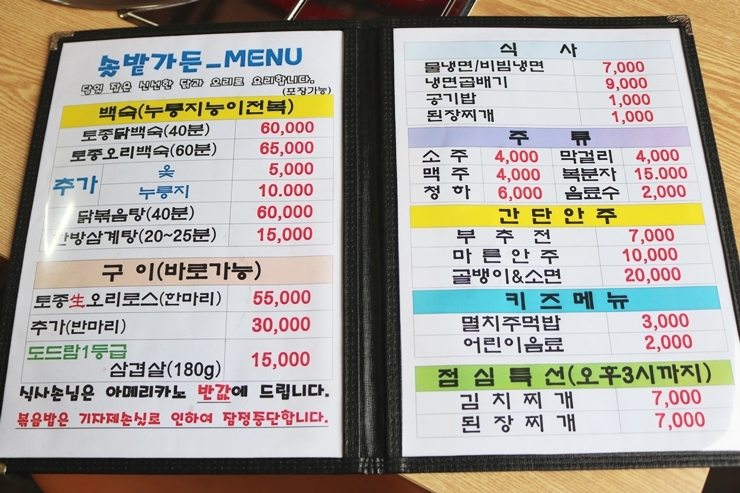 솔밭가든_MENU
당일 잡은 신선한 닭과 오리로 요리합니다.
(포장가능)
백숙(누룽지능이전복)
토종닭백숙(40분) 60,000
토종오리백숙(60분) 65,000
추가 옻 5,000
누룽지 10.000
닭볶음탕(40분) 60,000
한방삼계탕(20~25분) 15,000
구 이(바로가능)
토종生오리로스(한마리) 55,000
추가(반마리) 30,000
도드람1등급
삼겹살(180g) 15,000
식사손님은 아메리카노 반값에 드립니다.
볶음밥은 기자제손실로 인하여 잠정중단합니다.
식 사
물냉면/비빔냉면 7,000
냉면곱배기 9,000
공기밥 1,000
된장찌개 1,000
주 류
소 주 4,000 막걸리 4,000
맥 주 4,000 복분자 15.000
청 하 6,000 음료수 2,000
간 단 안 주
부 추 전 7,000
마 른 안 주 10,000
골뱅이&소면 20,000
키 즈 메 뉴
멸치주먹밥 3,000
어린이음료 2,000
점 심 특 선(오후3시까지)
김 치 찌 개 7,000
된 장 찌 개 7,000